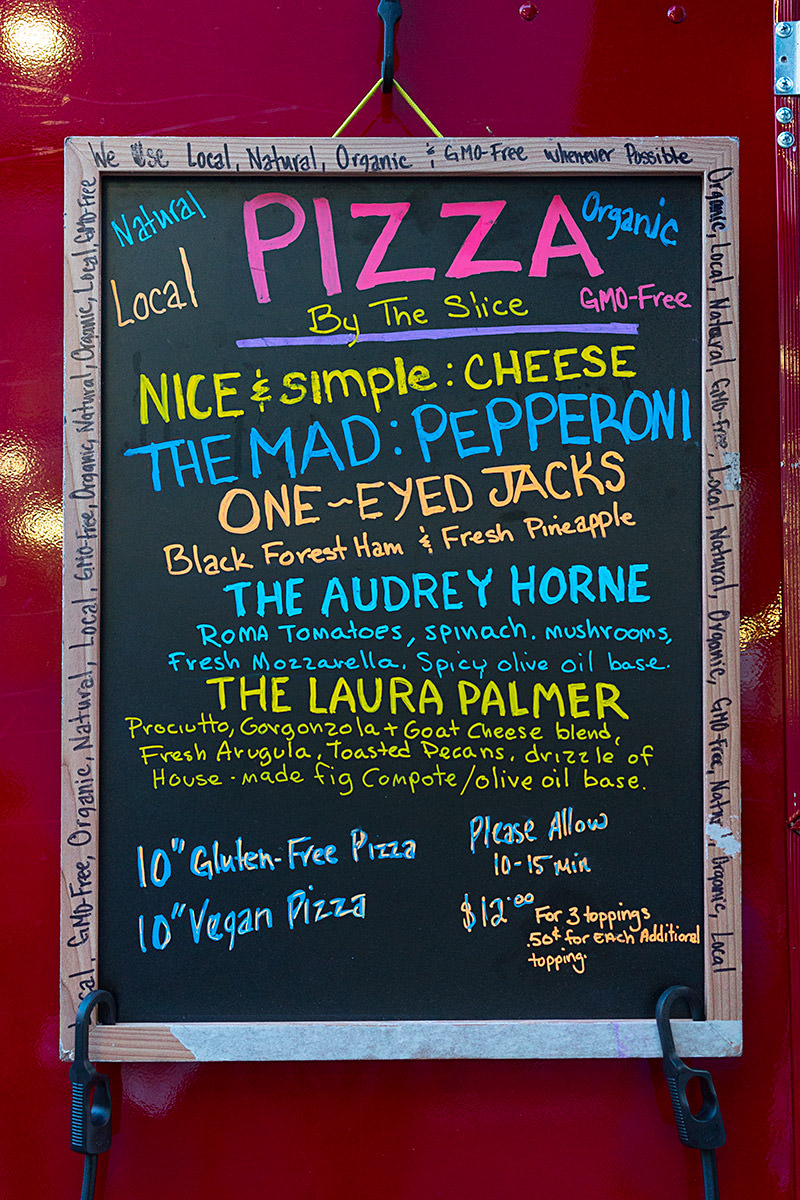 We Use Local, Natural, Organic & GMO-Free Whenever Possible
Natural
PIZZA
Organic
Local
By The Slice
GMO-Free
NICE & simple: CHEESE
THE MAD: PEPPERONI
ONE-EYED JACKS
Black Forest Ham & Fresh Pineapple
THE AUDREY HORNE
Roma Tomatoes, spinach. mushrooms,
Fresh Mozzarella. Spicy olive oil base.
THE LAURA PALMER
Prociutto, Gorgonzola + Goat Cheese blend,
Fresh Arugula, Toasted Pecans. drizzle of
House-made fig Compote/olive oil base.
10" Gluten-Free Pizza
Please Allow
10-15 Min
10" Vegan Pizza
$12.00 For 3 toppings
.50¢ for Each Additional
topping.
Local, GMO-Free, Organic, Natural, Local, GMO-Free, Organic, Natural, Organic, Local, GMO-Free
Organic, Local, Natural, GMO-Free, Local, Natural, Organic, GMO-Free, Natural, Organic, Local